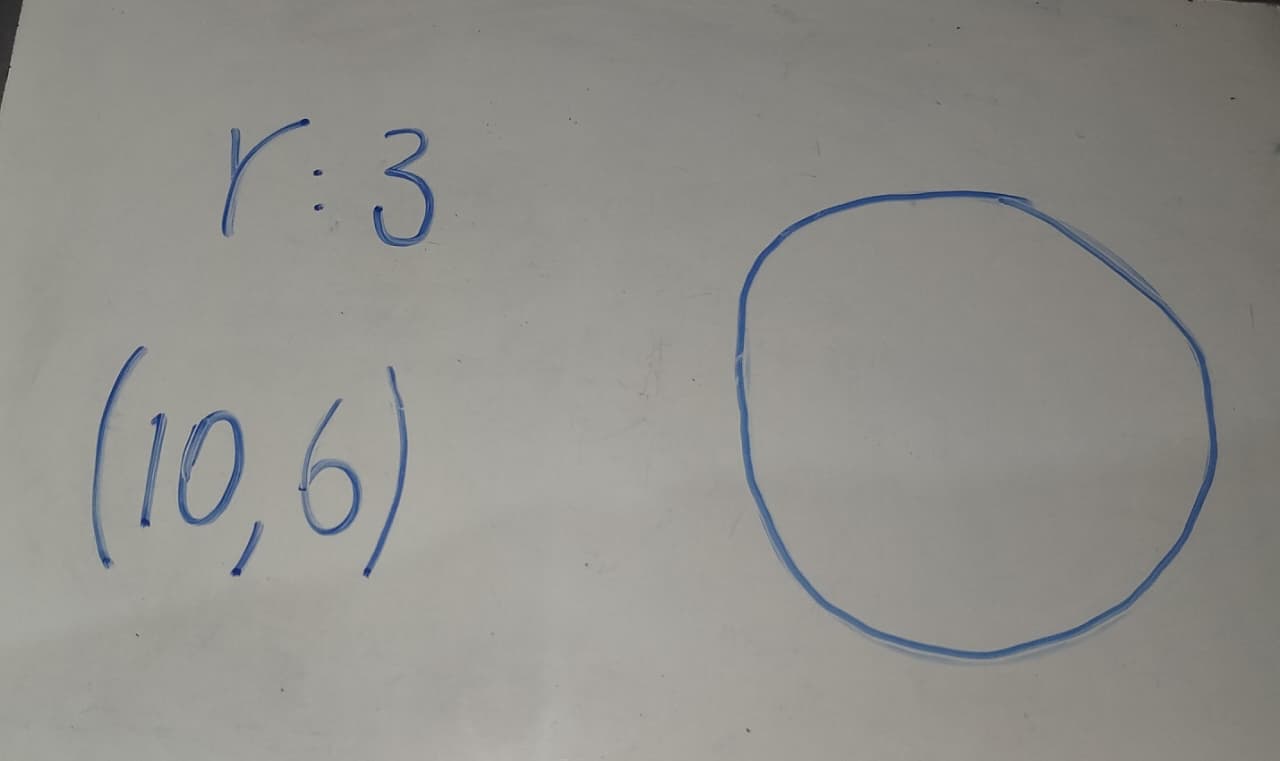 r: 3
(10,6)